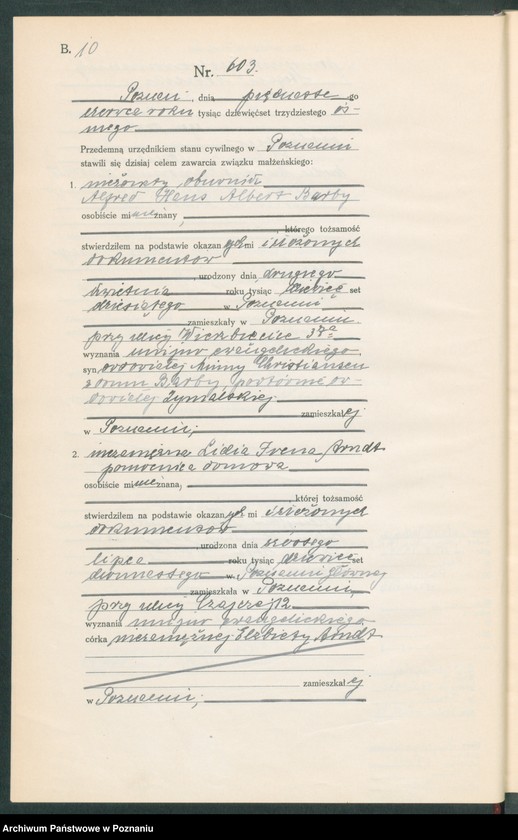 B. 10
Nr. 603.
Poznań, dnia piętnastego
czerwca roku tysiąc dziewięćset trzydziestego ós-
mego.
Przedemną urzędnikiem stanu cywilnego w Poznaniu
stawili się dzisiaj celem zawarcia związku małżeńskiego:
1. nieżonaty obuwnik
Alfred Hans Albert Barby
osobiście mi nieznany,
, którego tożsamość
stwierdziłem na podstawie okazanych mi i złożonych
dokumentów
, urodzony dnia drugiego
kwietnia roku tysiąc dziewięćset
dziesiątego w Poznaniu,
zamieszkały w Poznaniu
przy ulicy Wierzbięcice 37a
wyznania unijno ewangelickiego
syn owdowiałej Anny Christiansen
z domu Barby, powtórnie ow-
dowiałej Zymalskiej
zamieszkałej
w Poznaniu;
2. niezamężna Lidia Irena Arndt
pomocnica domowa
osobiście mi nieznana,
, której tożsamość
stwierdziłem na podstawie okazanych mi i złożonych
dokumentów
, urodzona dnia szóstego
lipca roku tysiąc dziewięćset
dwunastego w Poznaniu Głównej
zamieszkała w Poznaniu,
przy ulicy Czajczej 12
wyznania unijno ewangelickiego
córka niezamężnej Elżbiety Arndt
zamieszkałej
w Poznaniu;
Archiwum Państwowe w Poznaniu